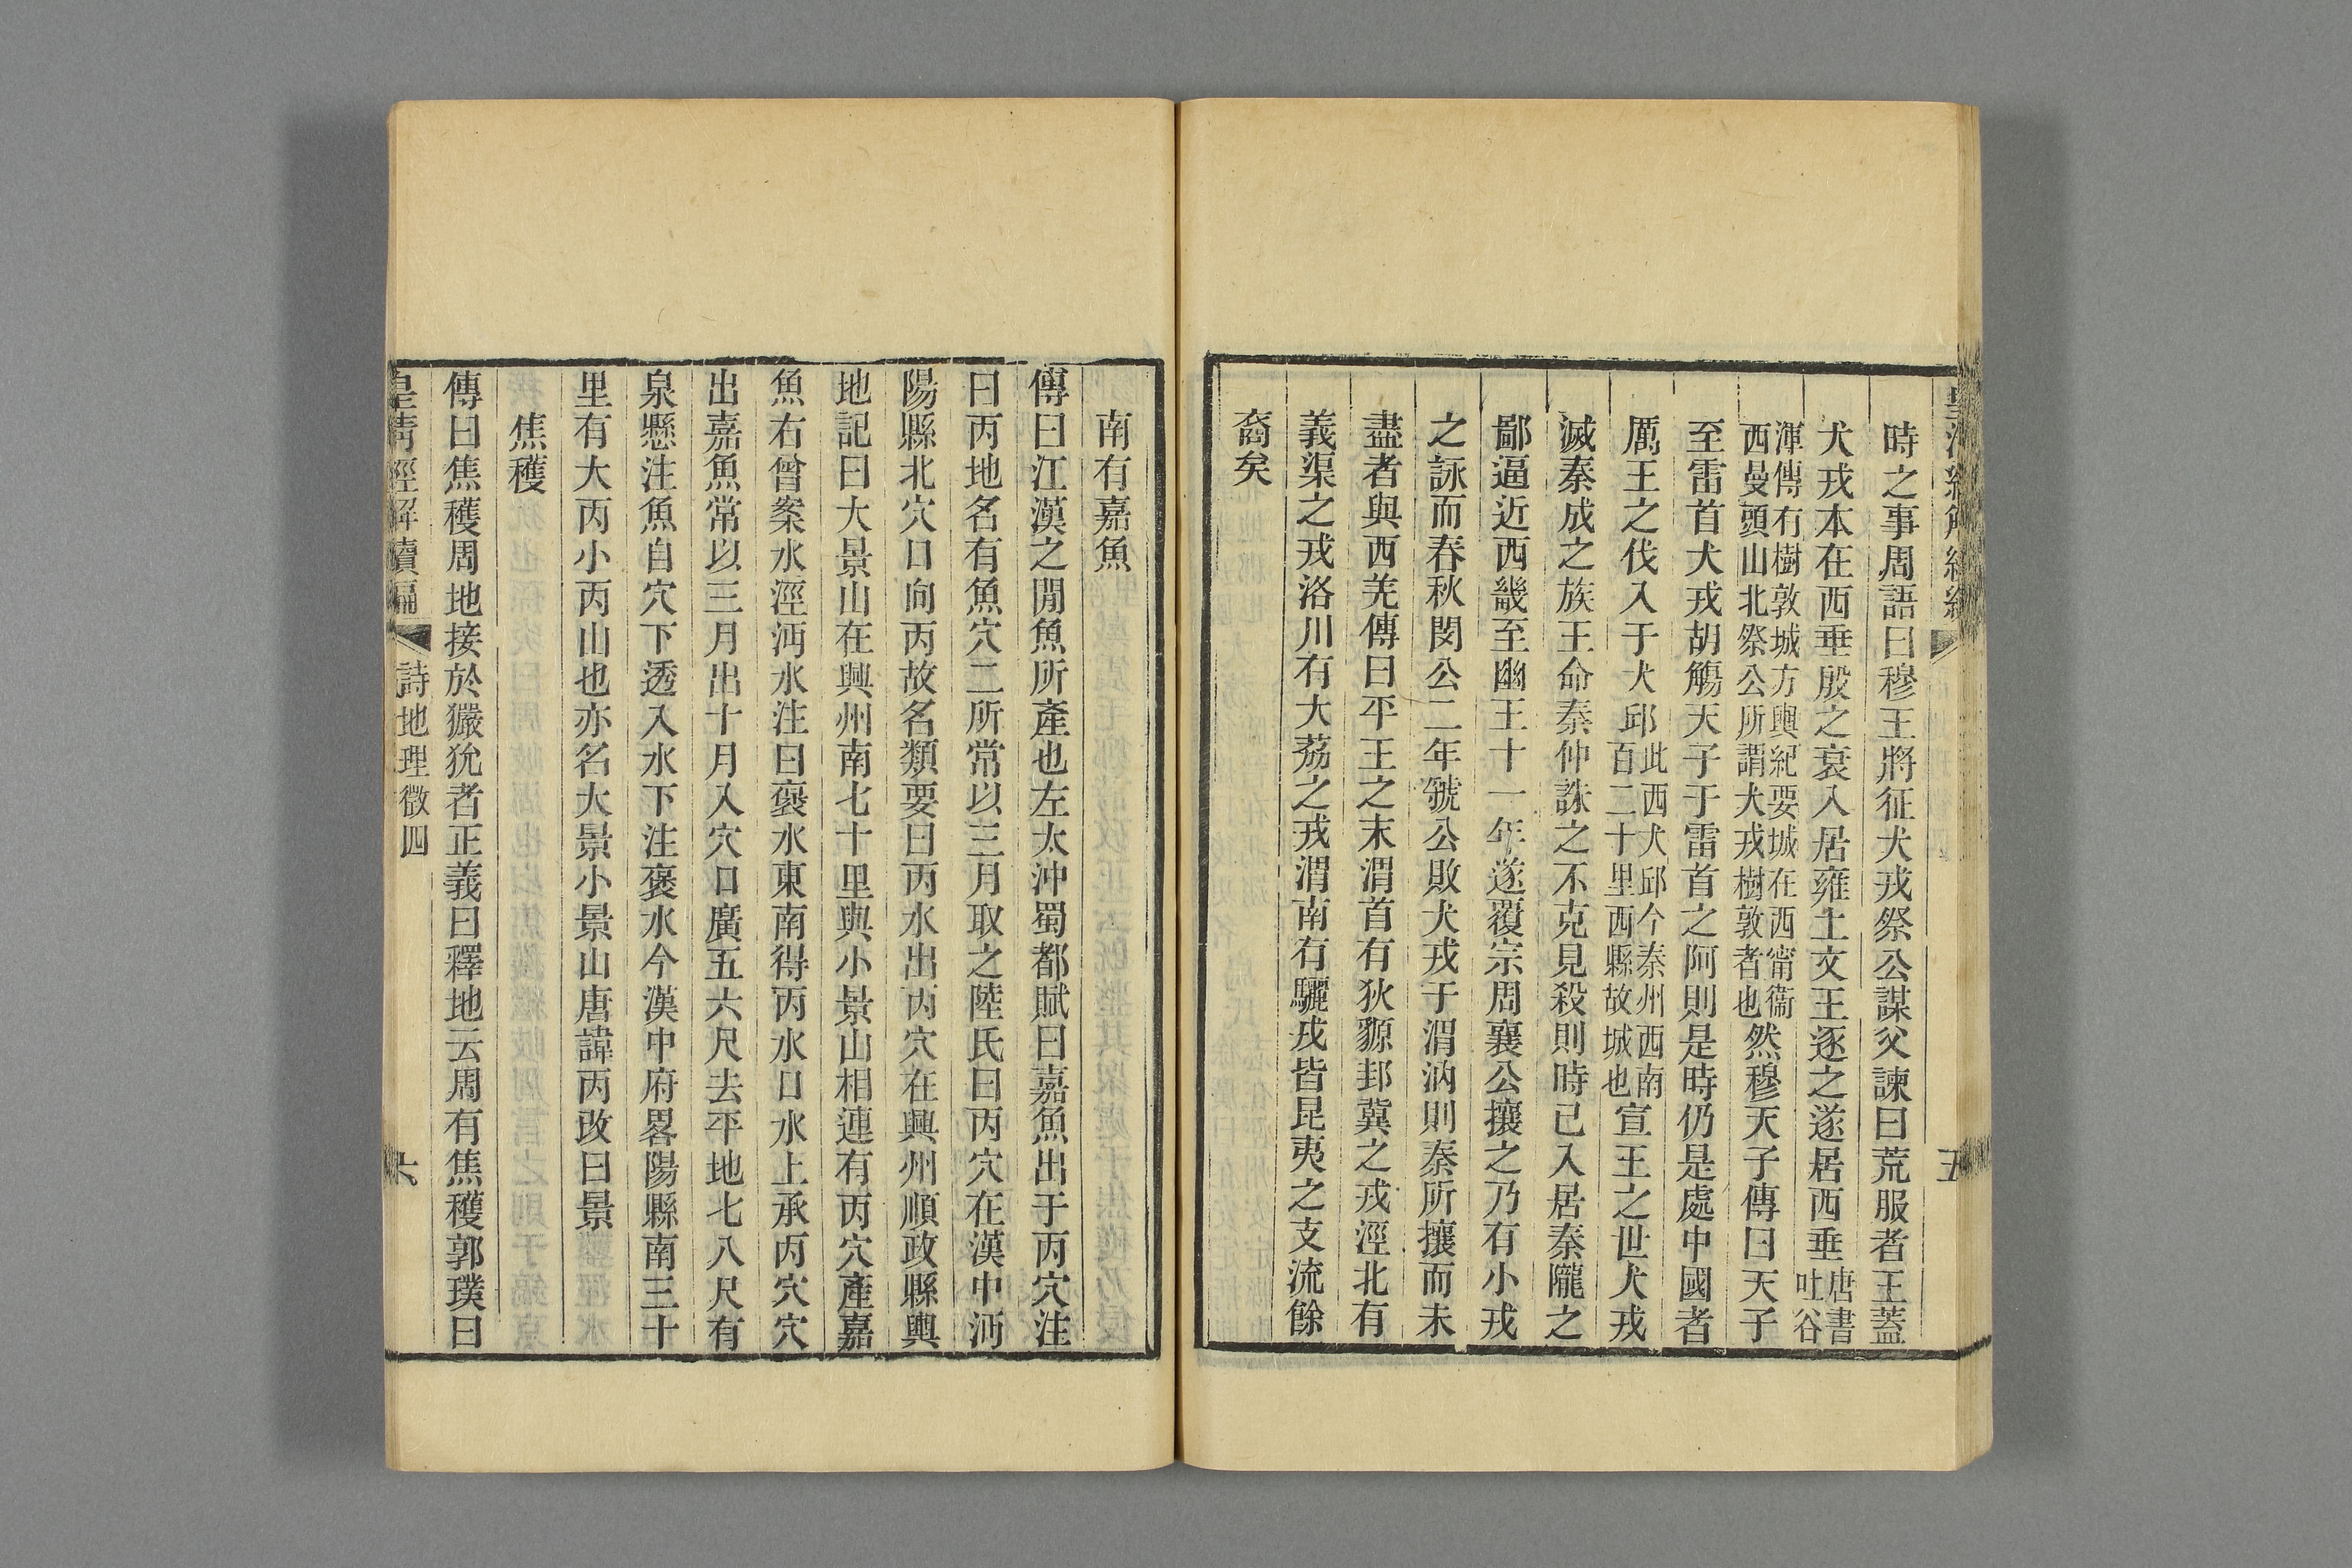 時之事周語曰穆王將征犬戎祭公謀父諫曰荒服者王蓋
犬戎本在西垂殷之衰入居雍土文王逐之遂居西垂唐書吐谷
渾傳有樹敦城方輿紀要城在西甯衞西曼頭山北祭公所謂犬戎樹敦者也然穆天子傳曰天子
至雷首犬戎胡觴天子于雷首之阿則是時仍是處中國者
厲王之伐入于犬邱此西犬邱今秦州西南百二十里西縣故城也宣王之世犬戎
滅秦成之族王命秦仲誅之不克見殺則時已入居秦隴之
鄙逼近西畿至幽王十一年遂覆宗周襄公攘之乃有小戎
之詠而春秋閔公二年虢公敗犬戎于渭汭則秦所攘而未
盡者與西羌傳曰平王之末渭首有狄䝠邽冀之戎涇北有
義渠之戎洛川有大荔之戎渭南有驪戎皆昆夷之支流餘
裔矣
五
南有嘉魚
傳曰江漢之閒魚所產也左太沖蜀都賦曰嘉魚出于丙穴注
曰丙地名有魚穴二所常以三月取之陸氏曰丙穴在漢中沔
陽縣北穴口向丙故名類要曰丙水出丙穴在興州順政縣輿
地記曰大景山在興州南七十里與小景山相連有丙穴產嘉
魚右曾案水涇沔水注曰襃水東南得丙水口水上承丙穴穴
出嘉魚常以三月出十月入穴口廣五六尺去平地七八尺有
泉懸注魚自穴下透入水下注褒水今漢中府畧陽縣南三十
里有大丙小丙山也亦名大景小景山唐諱丙改曰景
焦穫
傳曰焦穫周地接於玁狁者正義曰釋地云周有焦穫郭璞曰
皇清經解續編 詩地理徵四 六